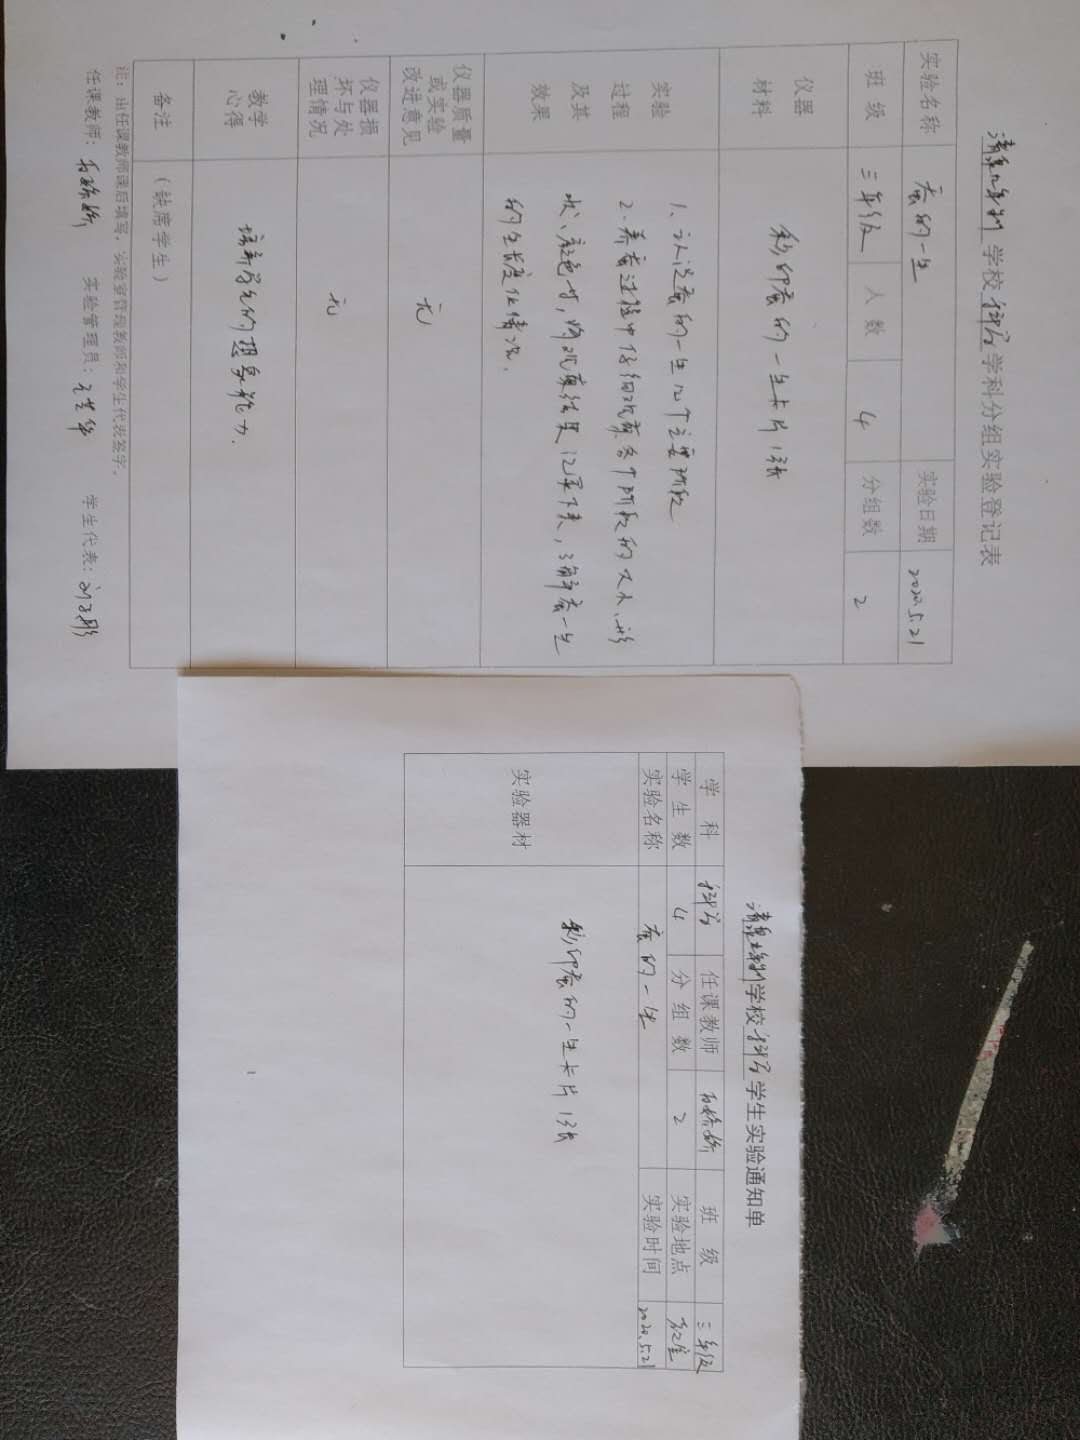 学校科学学科分组实验登记表
实验名称 蚕的一生 实验日期 2020.5.21
班级 三年级 人数 4 分组数 2
仪器材料 彩印蚕的一生卡片13张
实验过程及其效果
1、认识蚕的一生四个主要阶段
2、养蚕过程中仔细观察各个阶段的大小、形
状、颜色等,将观察结果记录下来,了解蚕一生
的生长变化情况.
仪器质量或实验改进意见 无
仪器损坏与处理情况 无
教学心得 培养学生的想象能力.
备注 (缺席学生)
注:由任课教师课后填写,实验室管理教师和学生代表签字。
任课教师: 实验管理员: 学生代表:
学校科学学生实验通知单
学科 科学 任课教师 班级 三年级
学生数 4 分组数 2 实验地点 教室
实验名称 蚕的一生 实验时间 2020.5.21
实验器材 彩印蚕的一生卡片13张